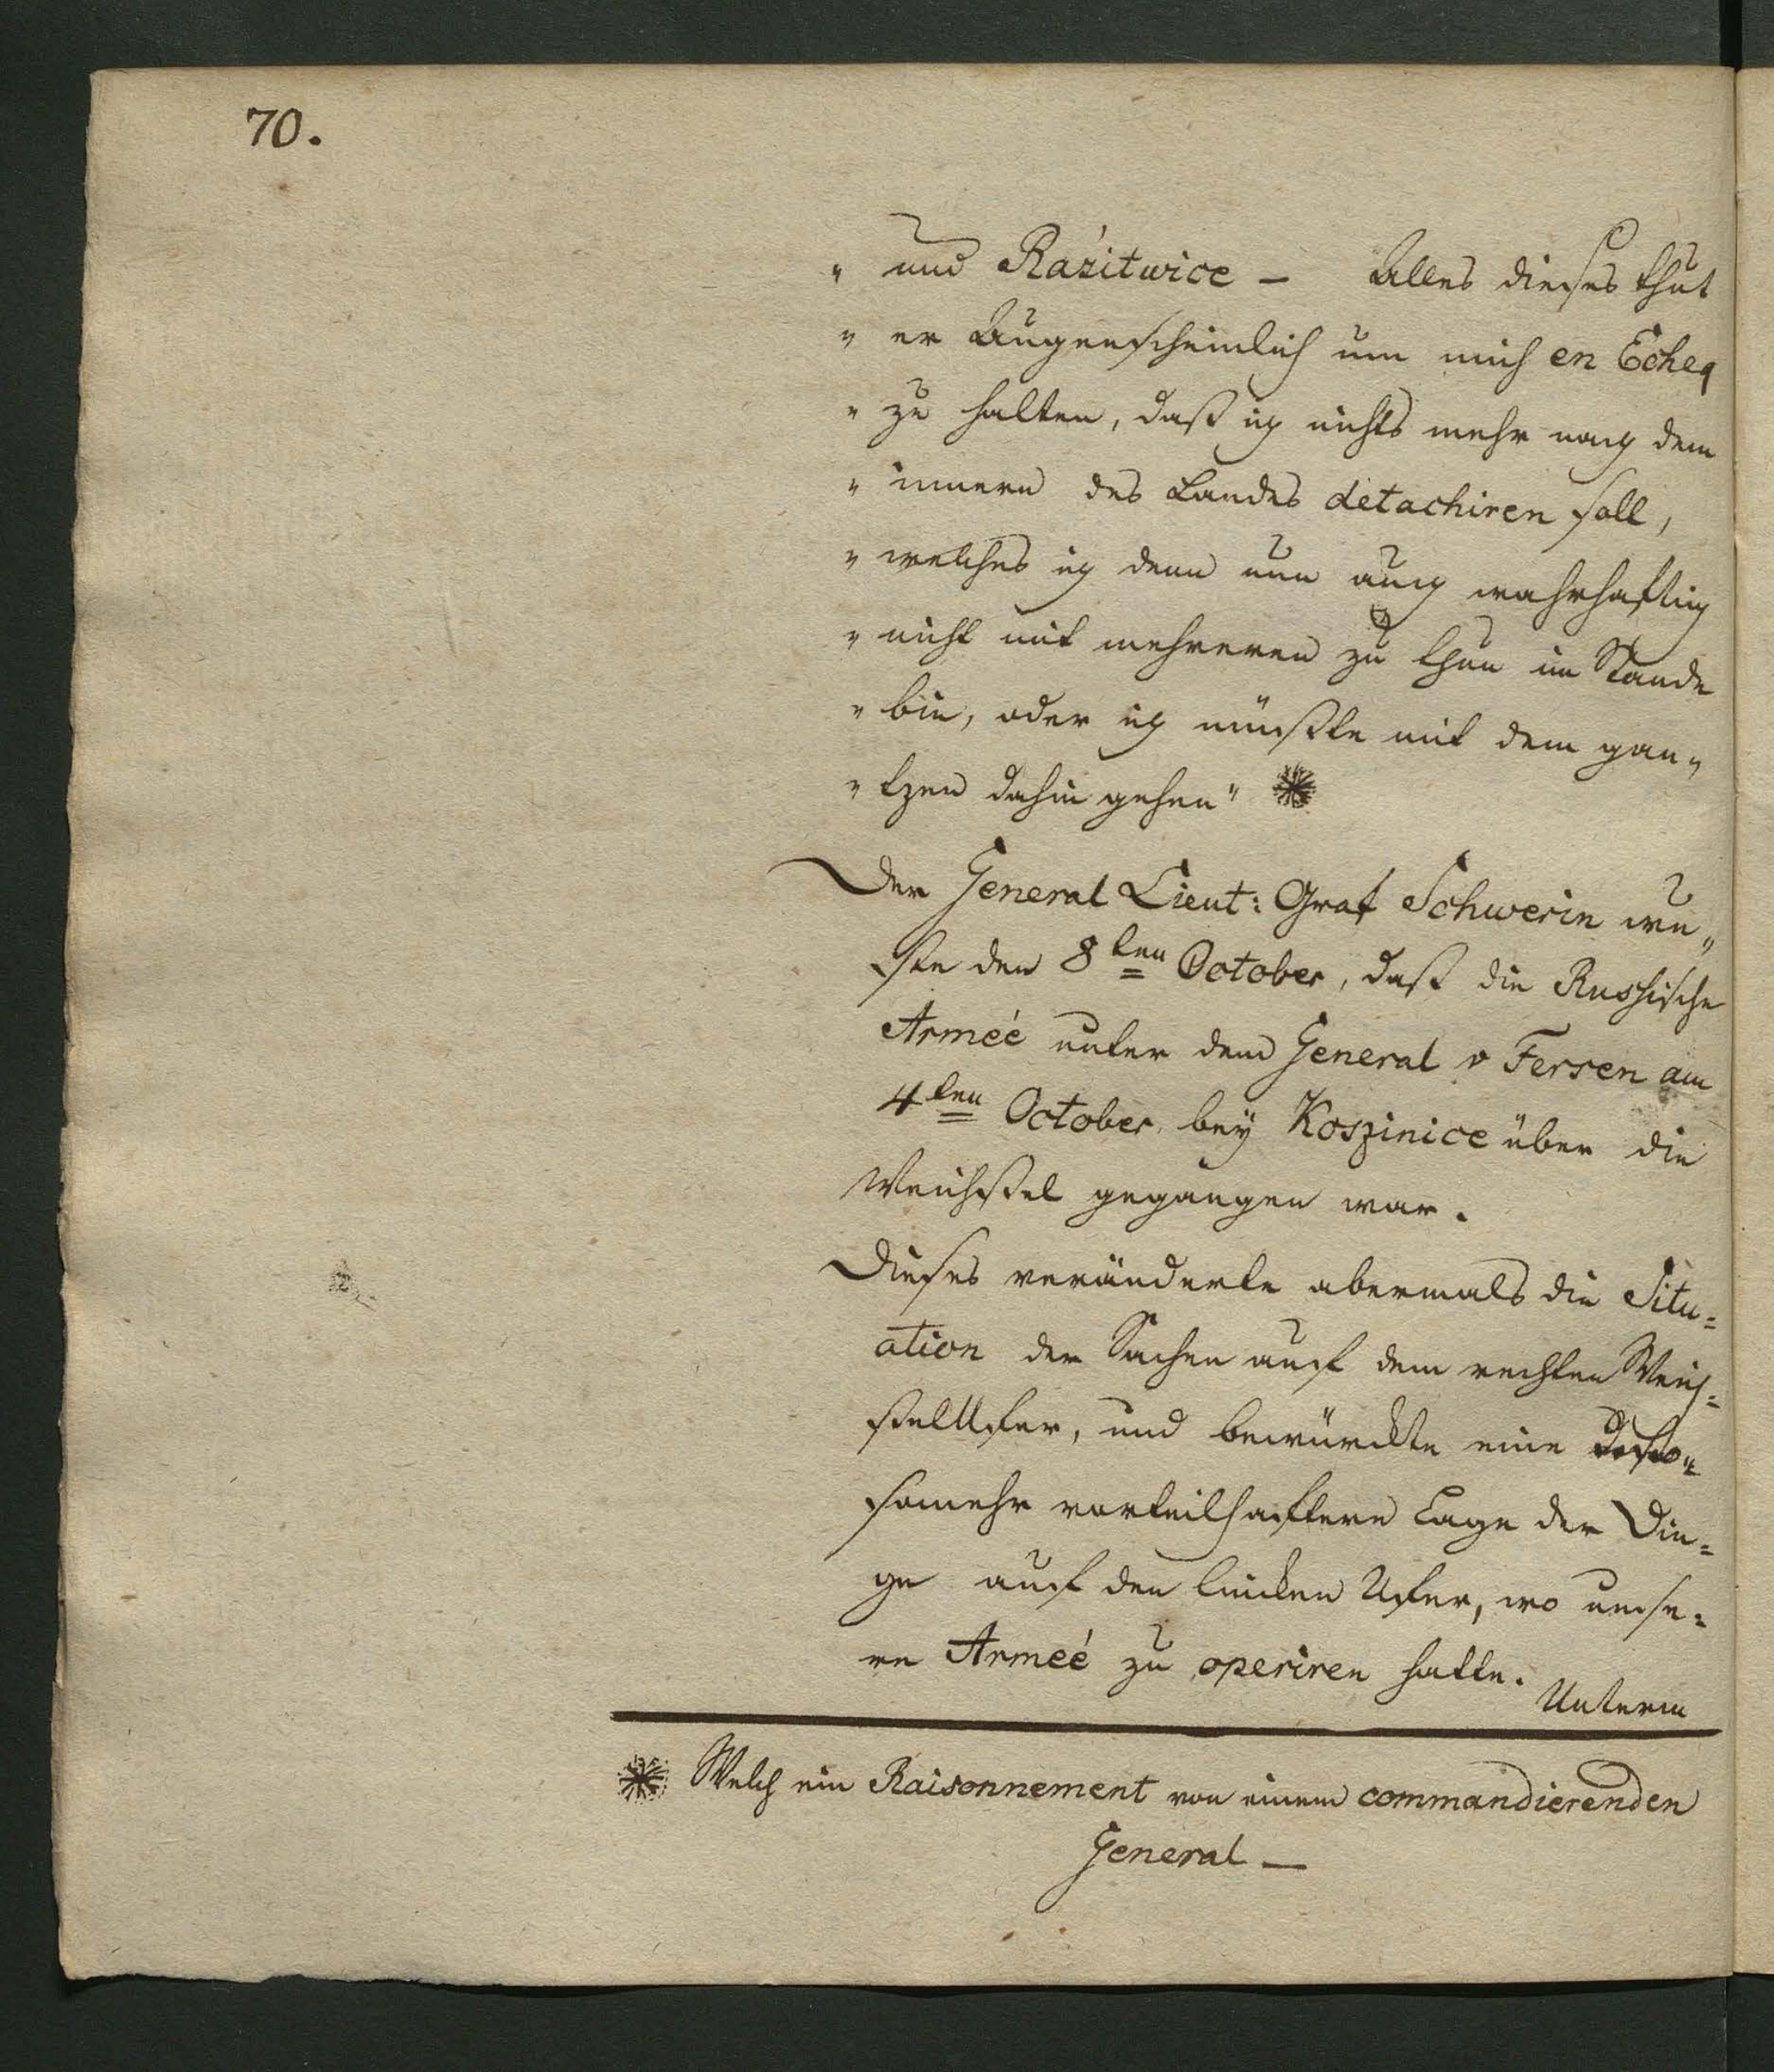 70.
" und Rázitwice – Alles dieses thut
" er Augenscheinlich um mich en Echeq
" zu halten, daß ich nichts mehr nach dem
" innern des Landes detachiren soll,
" welches ich denn nun auch wahrhaftig
" nicht mit mehreren zu thun im Stande
" bin, oder ich müßte mit dem gan„
" tzen dahin gehen" *
Der General Lieut: Graf Schwerin wu„
ste den 8ten October, daß die Russische
Armeé unter dem General v Fersen am
4ten October bey Koszinice über die
Weichsel gegangen war.
Dieses veränderte abermals die Situ=
ation der Sachen auf dem rechten Weich=
selUfer, und bewürckte eine desto=
somehr vorteilhaftere Lage der Din=
ge auf den lincken Ufer, wo unse=
re Armeé zu operiren hatte.
Unterm
* Welch ein Raisonnement von einem commandierenden
General –